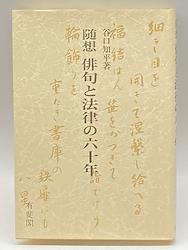 谷口知平著
随想 俳句と法律の六十年
細き目を
開きて涅槃し給へる
福結はん
笹をかつぎて
輪飾りを
重たき書庫の
鉄扉にも
有斐閣